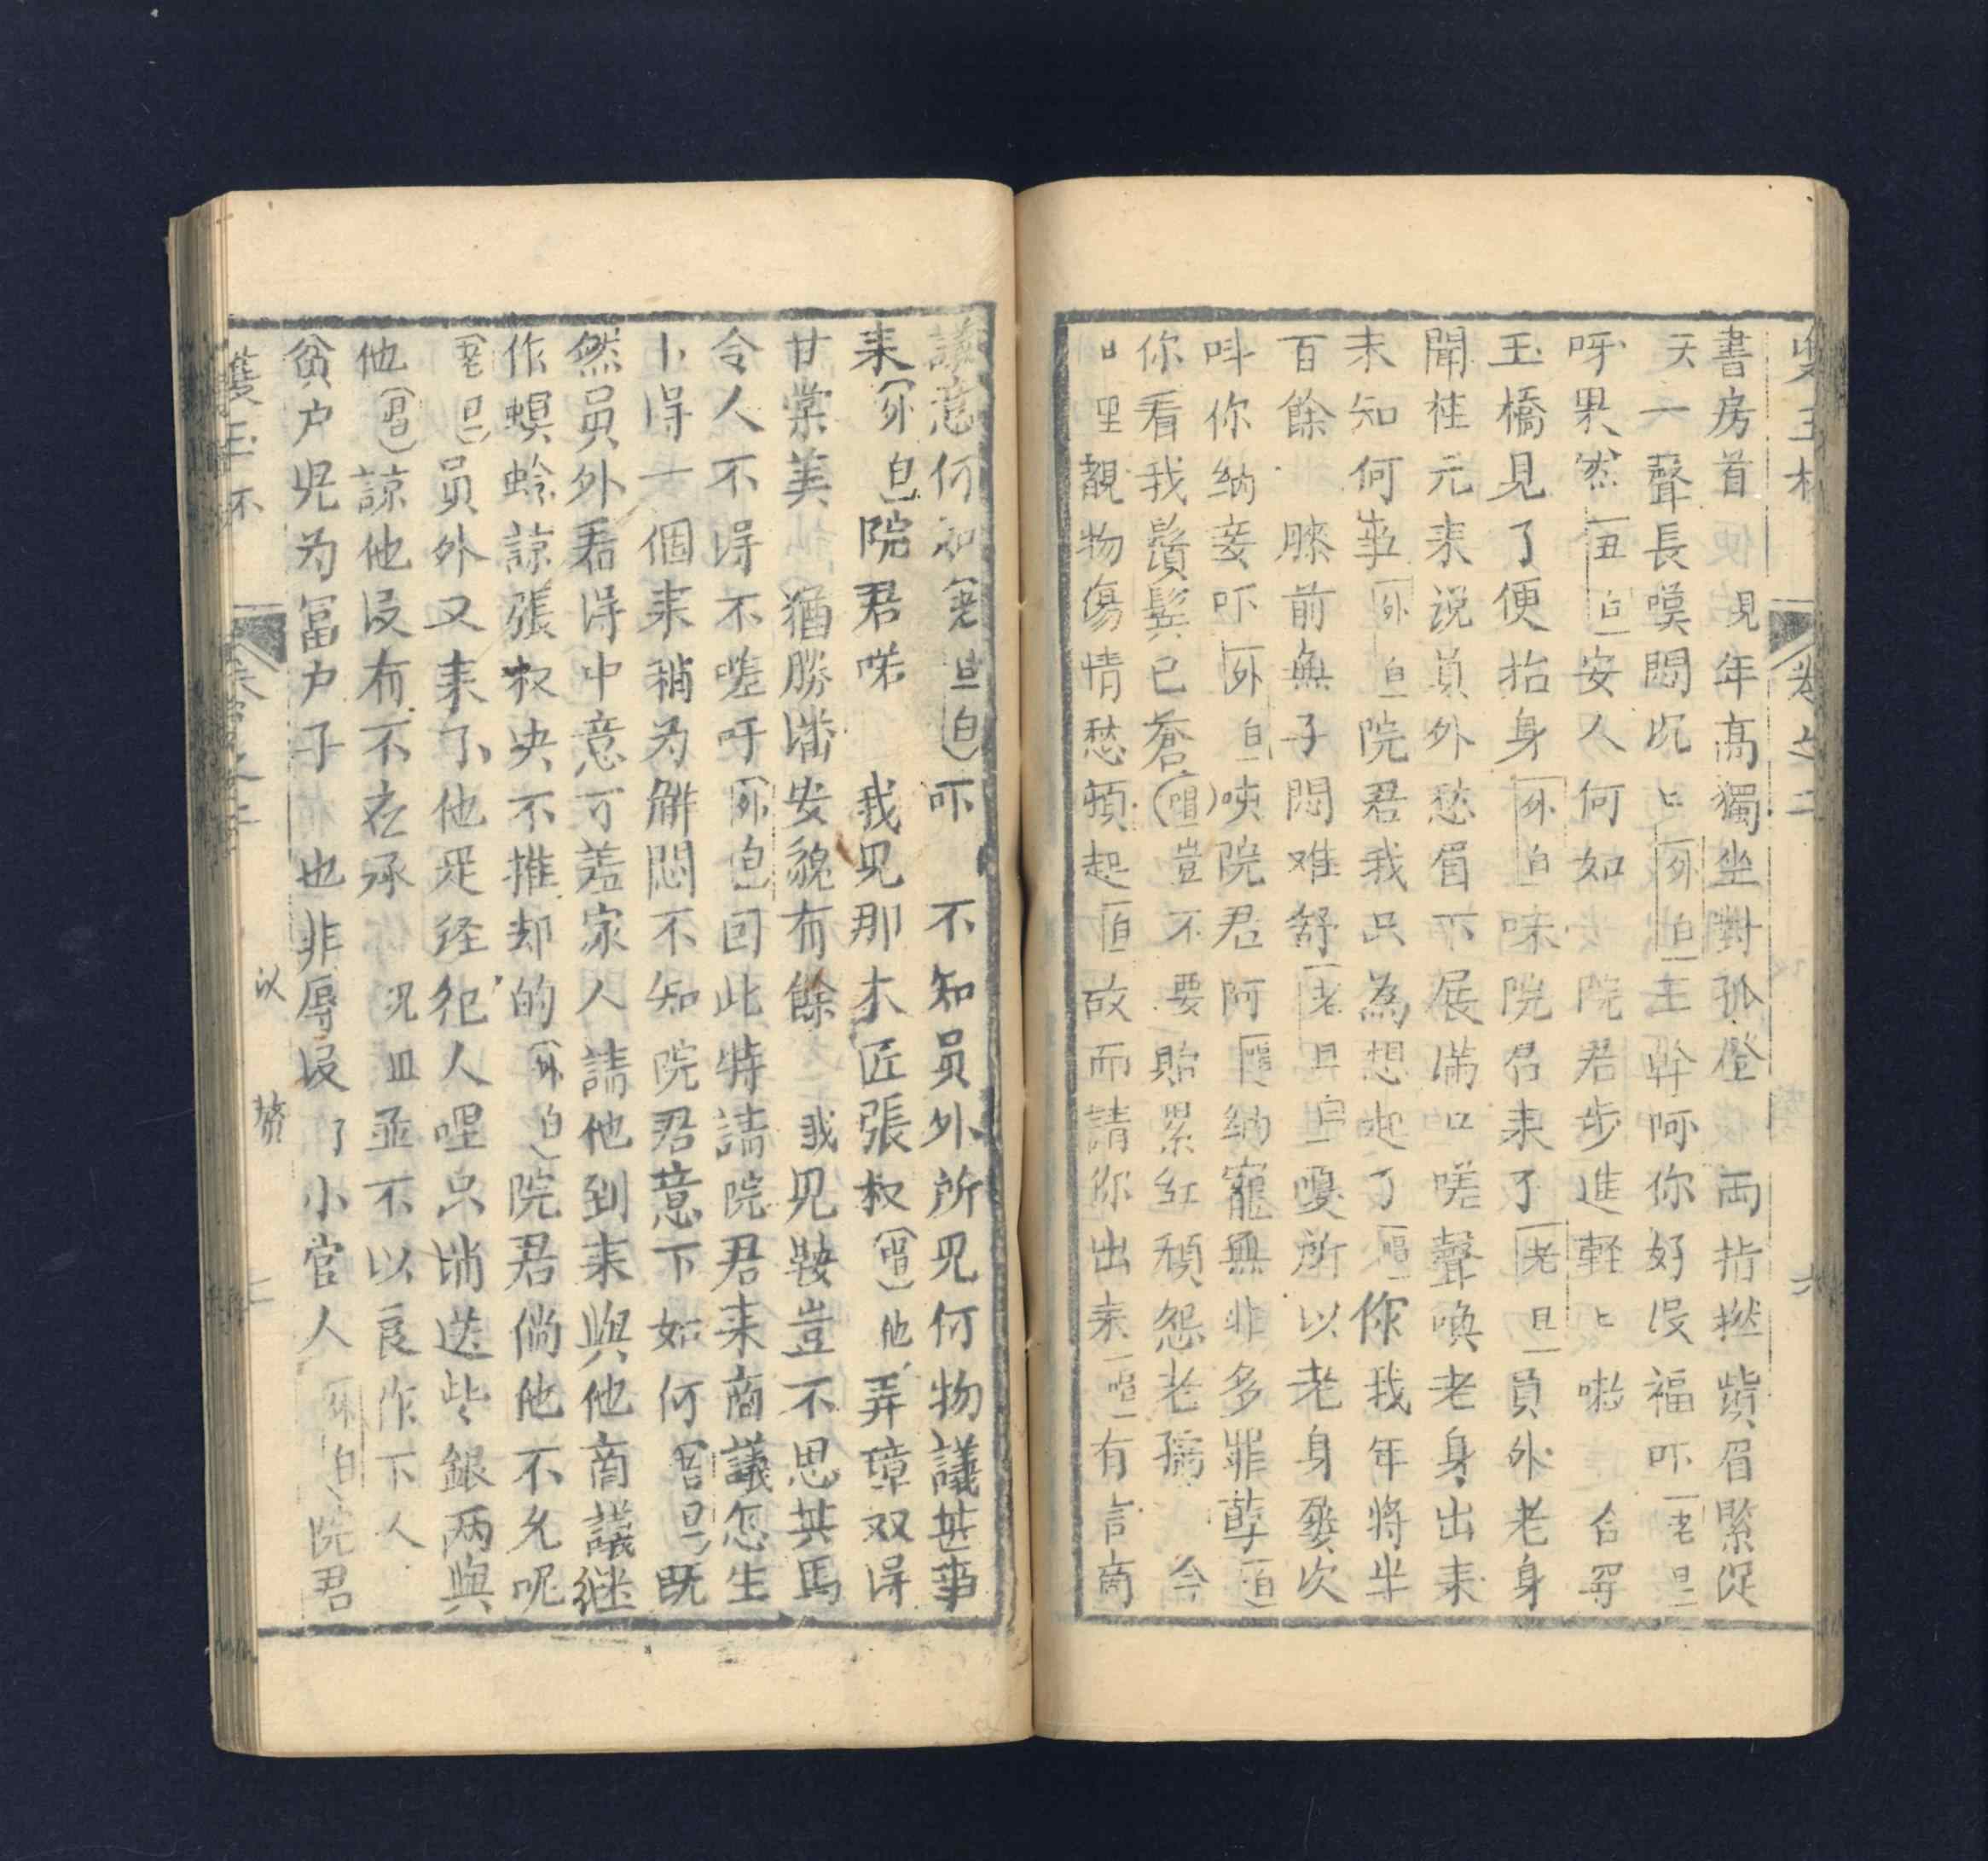 雙玉杯 卷之二 六
書房首 見年高獨坐對孤燈 両指撚鬚眉緊促
天一聲長嘆悶沉ヒ外白主幹阿你好没福吓老旦
呀果然丑白安人何如安院君步進輕ヒ嗽 合罕
玉橋見了便抬身外白味院君来了老旦員外老身
聞桂元来说員外愁眉不展满口嗟聲喚老身出来
未知何事外白院君我只為想起了唱你我年將半
百餘 膝前無子悶难舒老旦白嗄所以老身幾次
呌你納妾吓外白唉院君阿唱纳寵無非多罪孽白
你看我鬚髮已蒼唱豈不要貽累紅顏怨老孺 今
日里覩物傷情愁頓起白故而請你出来唱有言商
議意何如老旦白吓 不知員外所見何物議甚事
来外白院君喏 我見那木匠張权唱他弄璋双得
甘棠美 猶勝潘安貌有餘 我見鞍豈不思其馬
令人不得不嗟吁外白回此特請院君来商議怎生
卜得一個来稍为解悶不知院君意下如何老旦既
然員外看得中意可差家人請他到来與他商議継
作螟蛉諒張权决不推却的外白院君倘他不允呢
老旦員外又来了他是经纪人哩只消送些銀两與
他唱諒他没有不应承 况且並不以良作下人
貧户児为冨户子 也非辱没了小官人外白院君
雙玉杯 卷之二 七